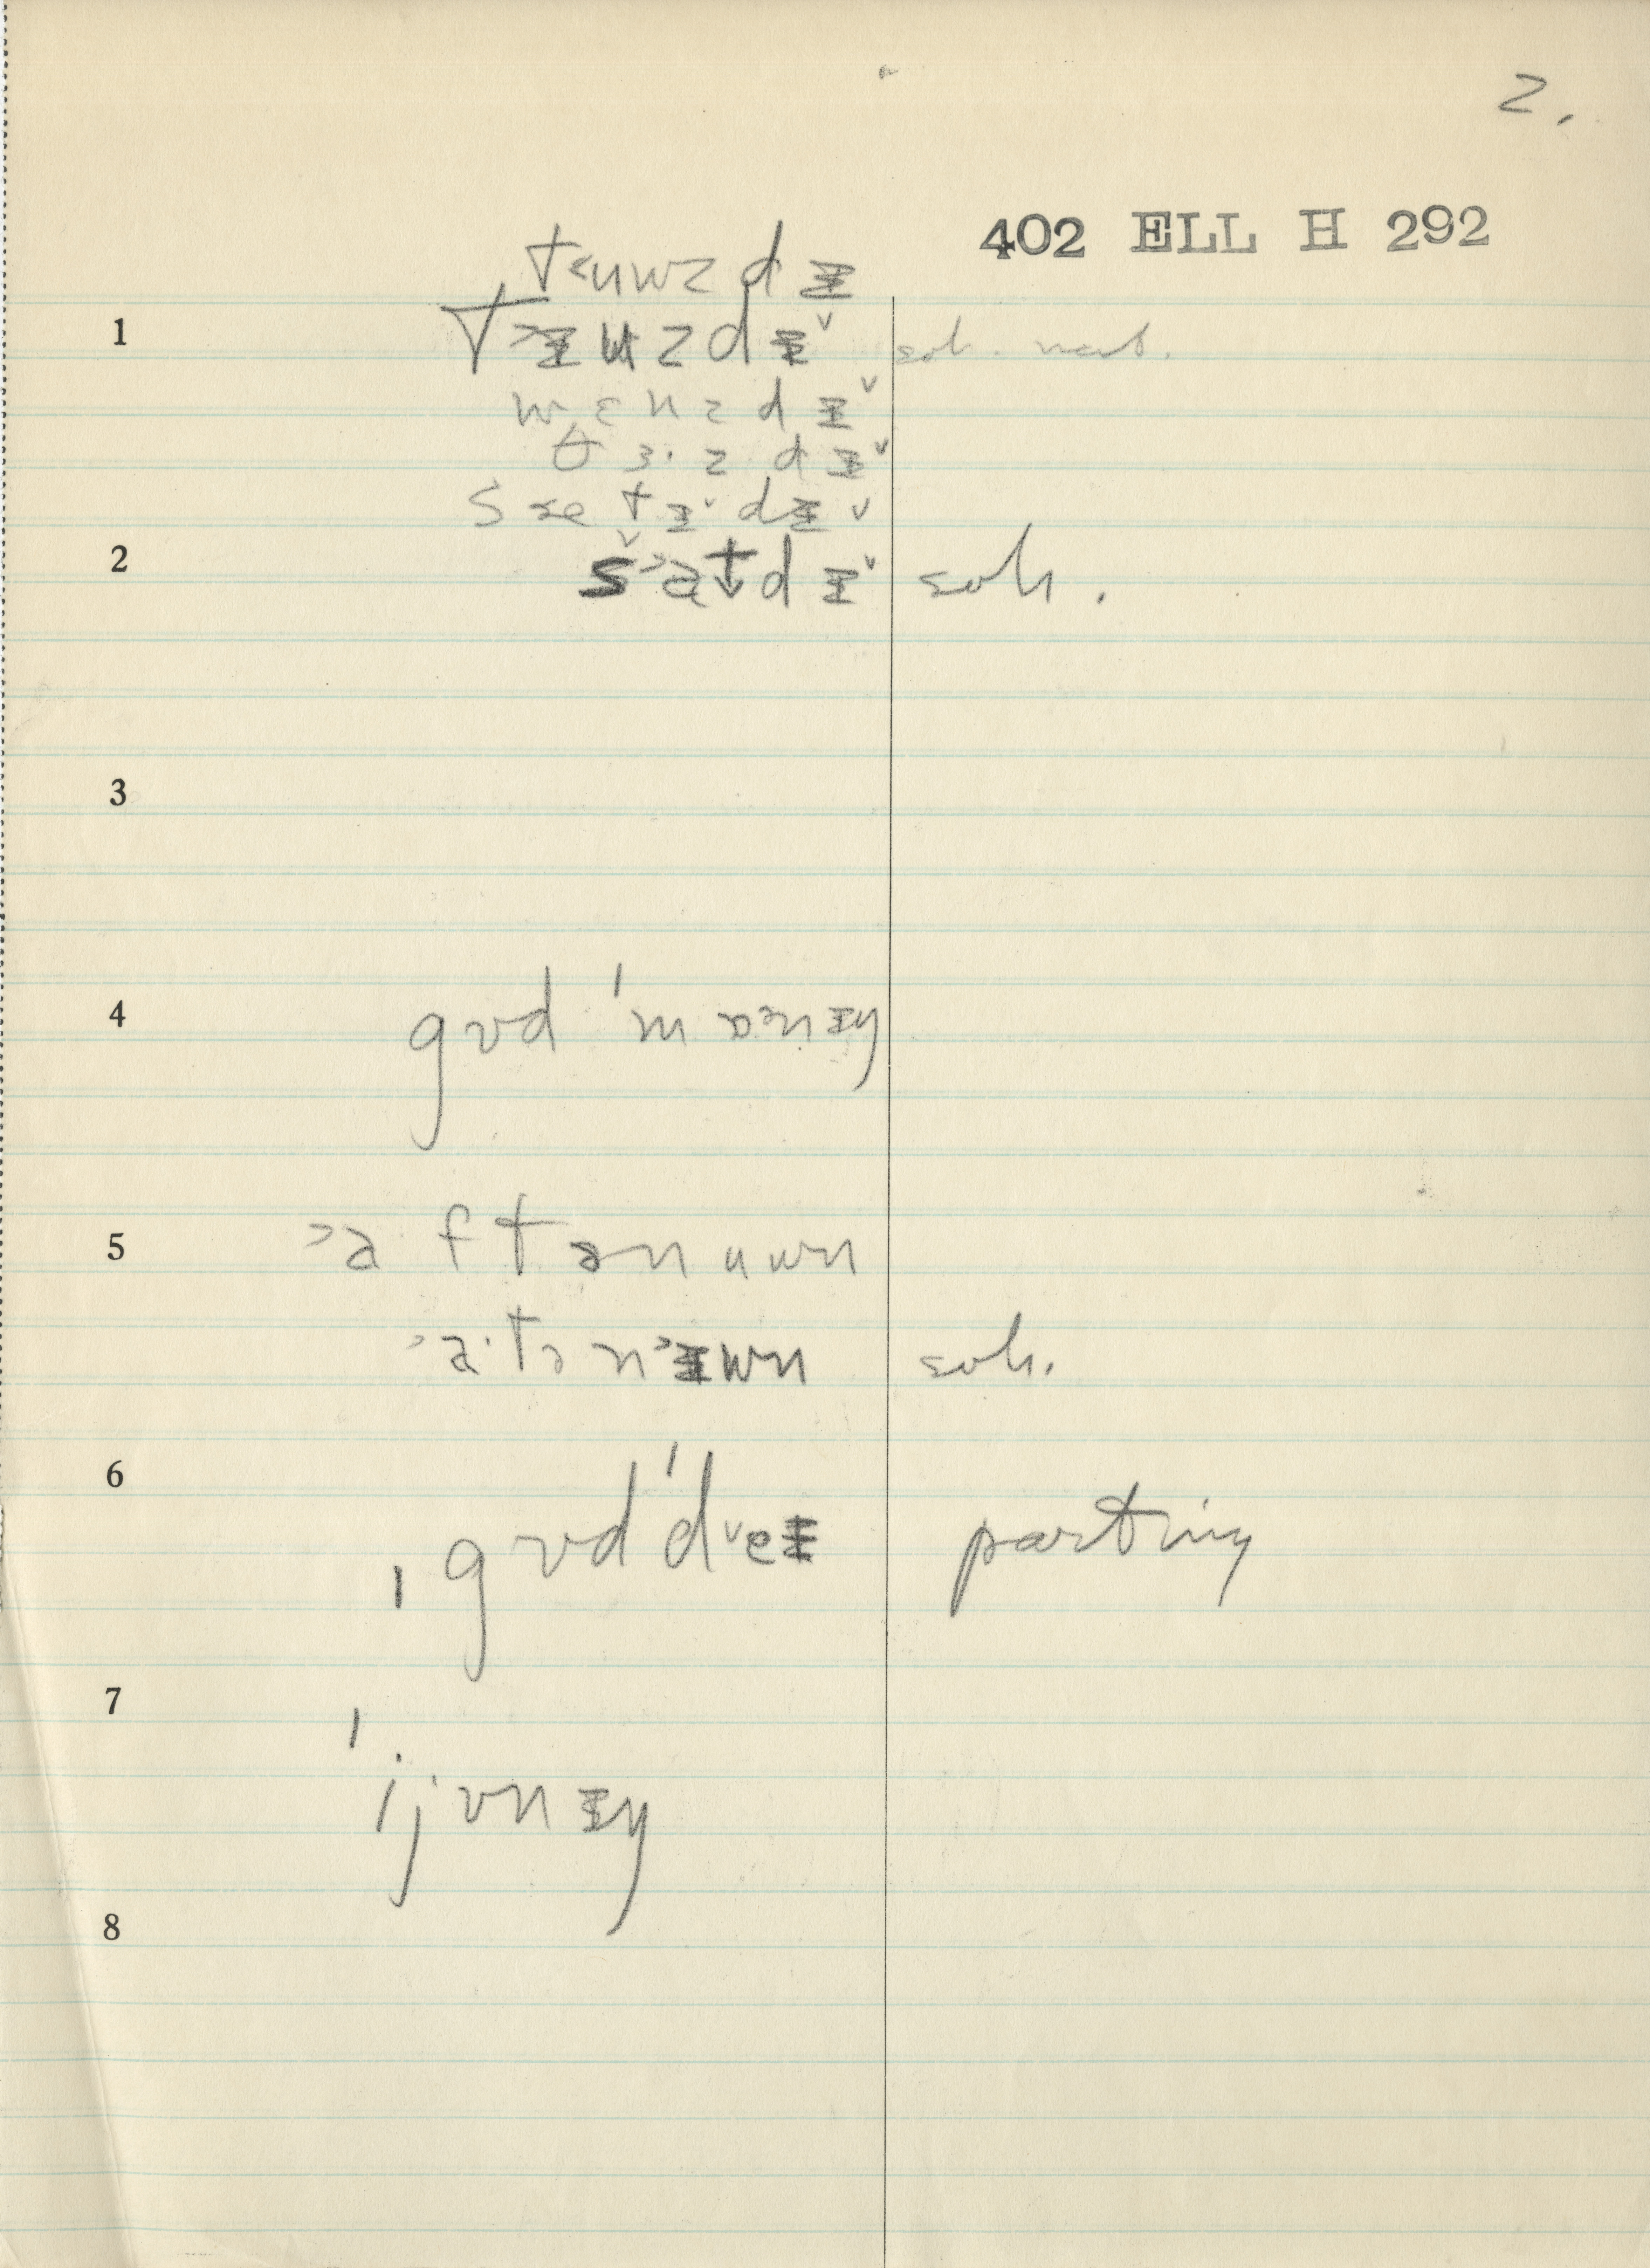 2.
402 ELL H 292
t˂uwzdɪ
1 t˃ɪuzdɪ˅ soh. nat.
wɛnzdɪ˅
θɜ·zdɪ˅
sætɪ˅dɪ˅
2 s˃atdɪ˅ soh.
3
4 gʋd ˈmɒ·nɪŋ
5 ˃a·ftənuwn
˃a·tən˃ɪwn soh.
6 ˌgʋdˈd˅eɪ parting
7 ˈijvnɪŋ
8